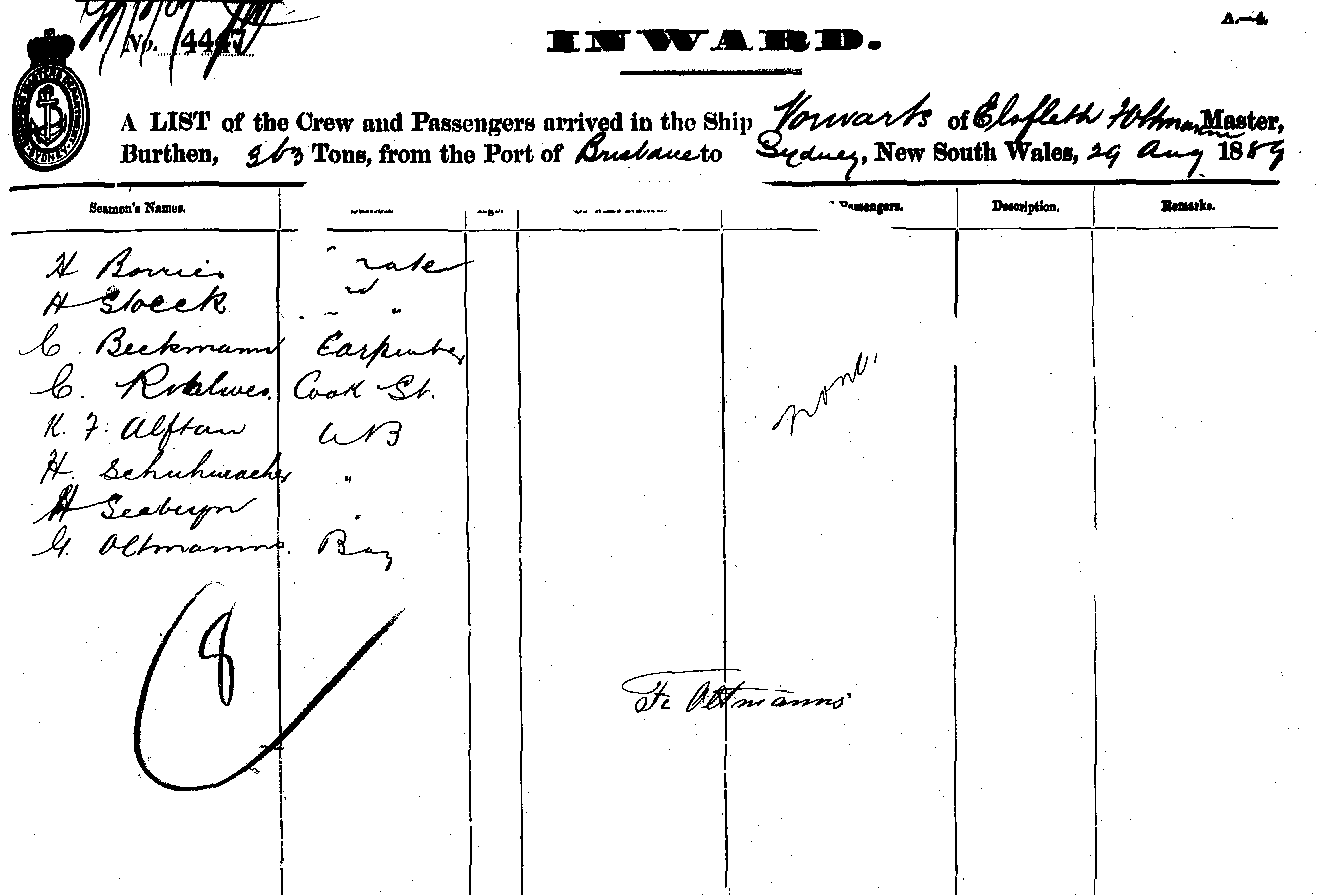 A.—4.
No. 4447
INWARD.
A LIST of the Crew and Passengers arrived in the Ship Vorwarts of Elsfleth F Oltmanns Master,
Burthen, 963 Tons, from the Port of Brisbane to Sydney, New South Wales, 29 Aug 1889
Seamen's Names. Passengers. Description. Remarks.
H Borries Mate
H Stoeck "
C. Beckmann Carpenter
C. Cook St.
none.
K. F. Alftan AB
H. Schuhmacher "
H
G. Oltmanns. Boy
8
Fr Oltmanns